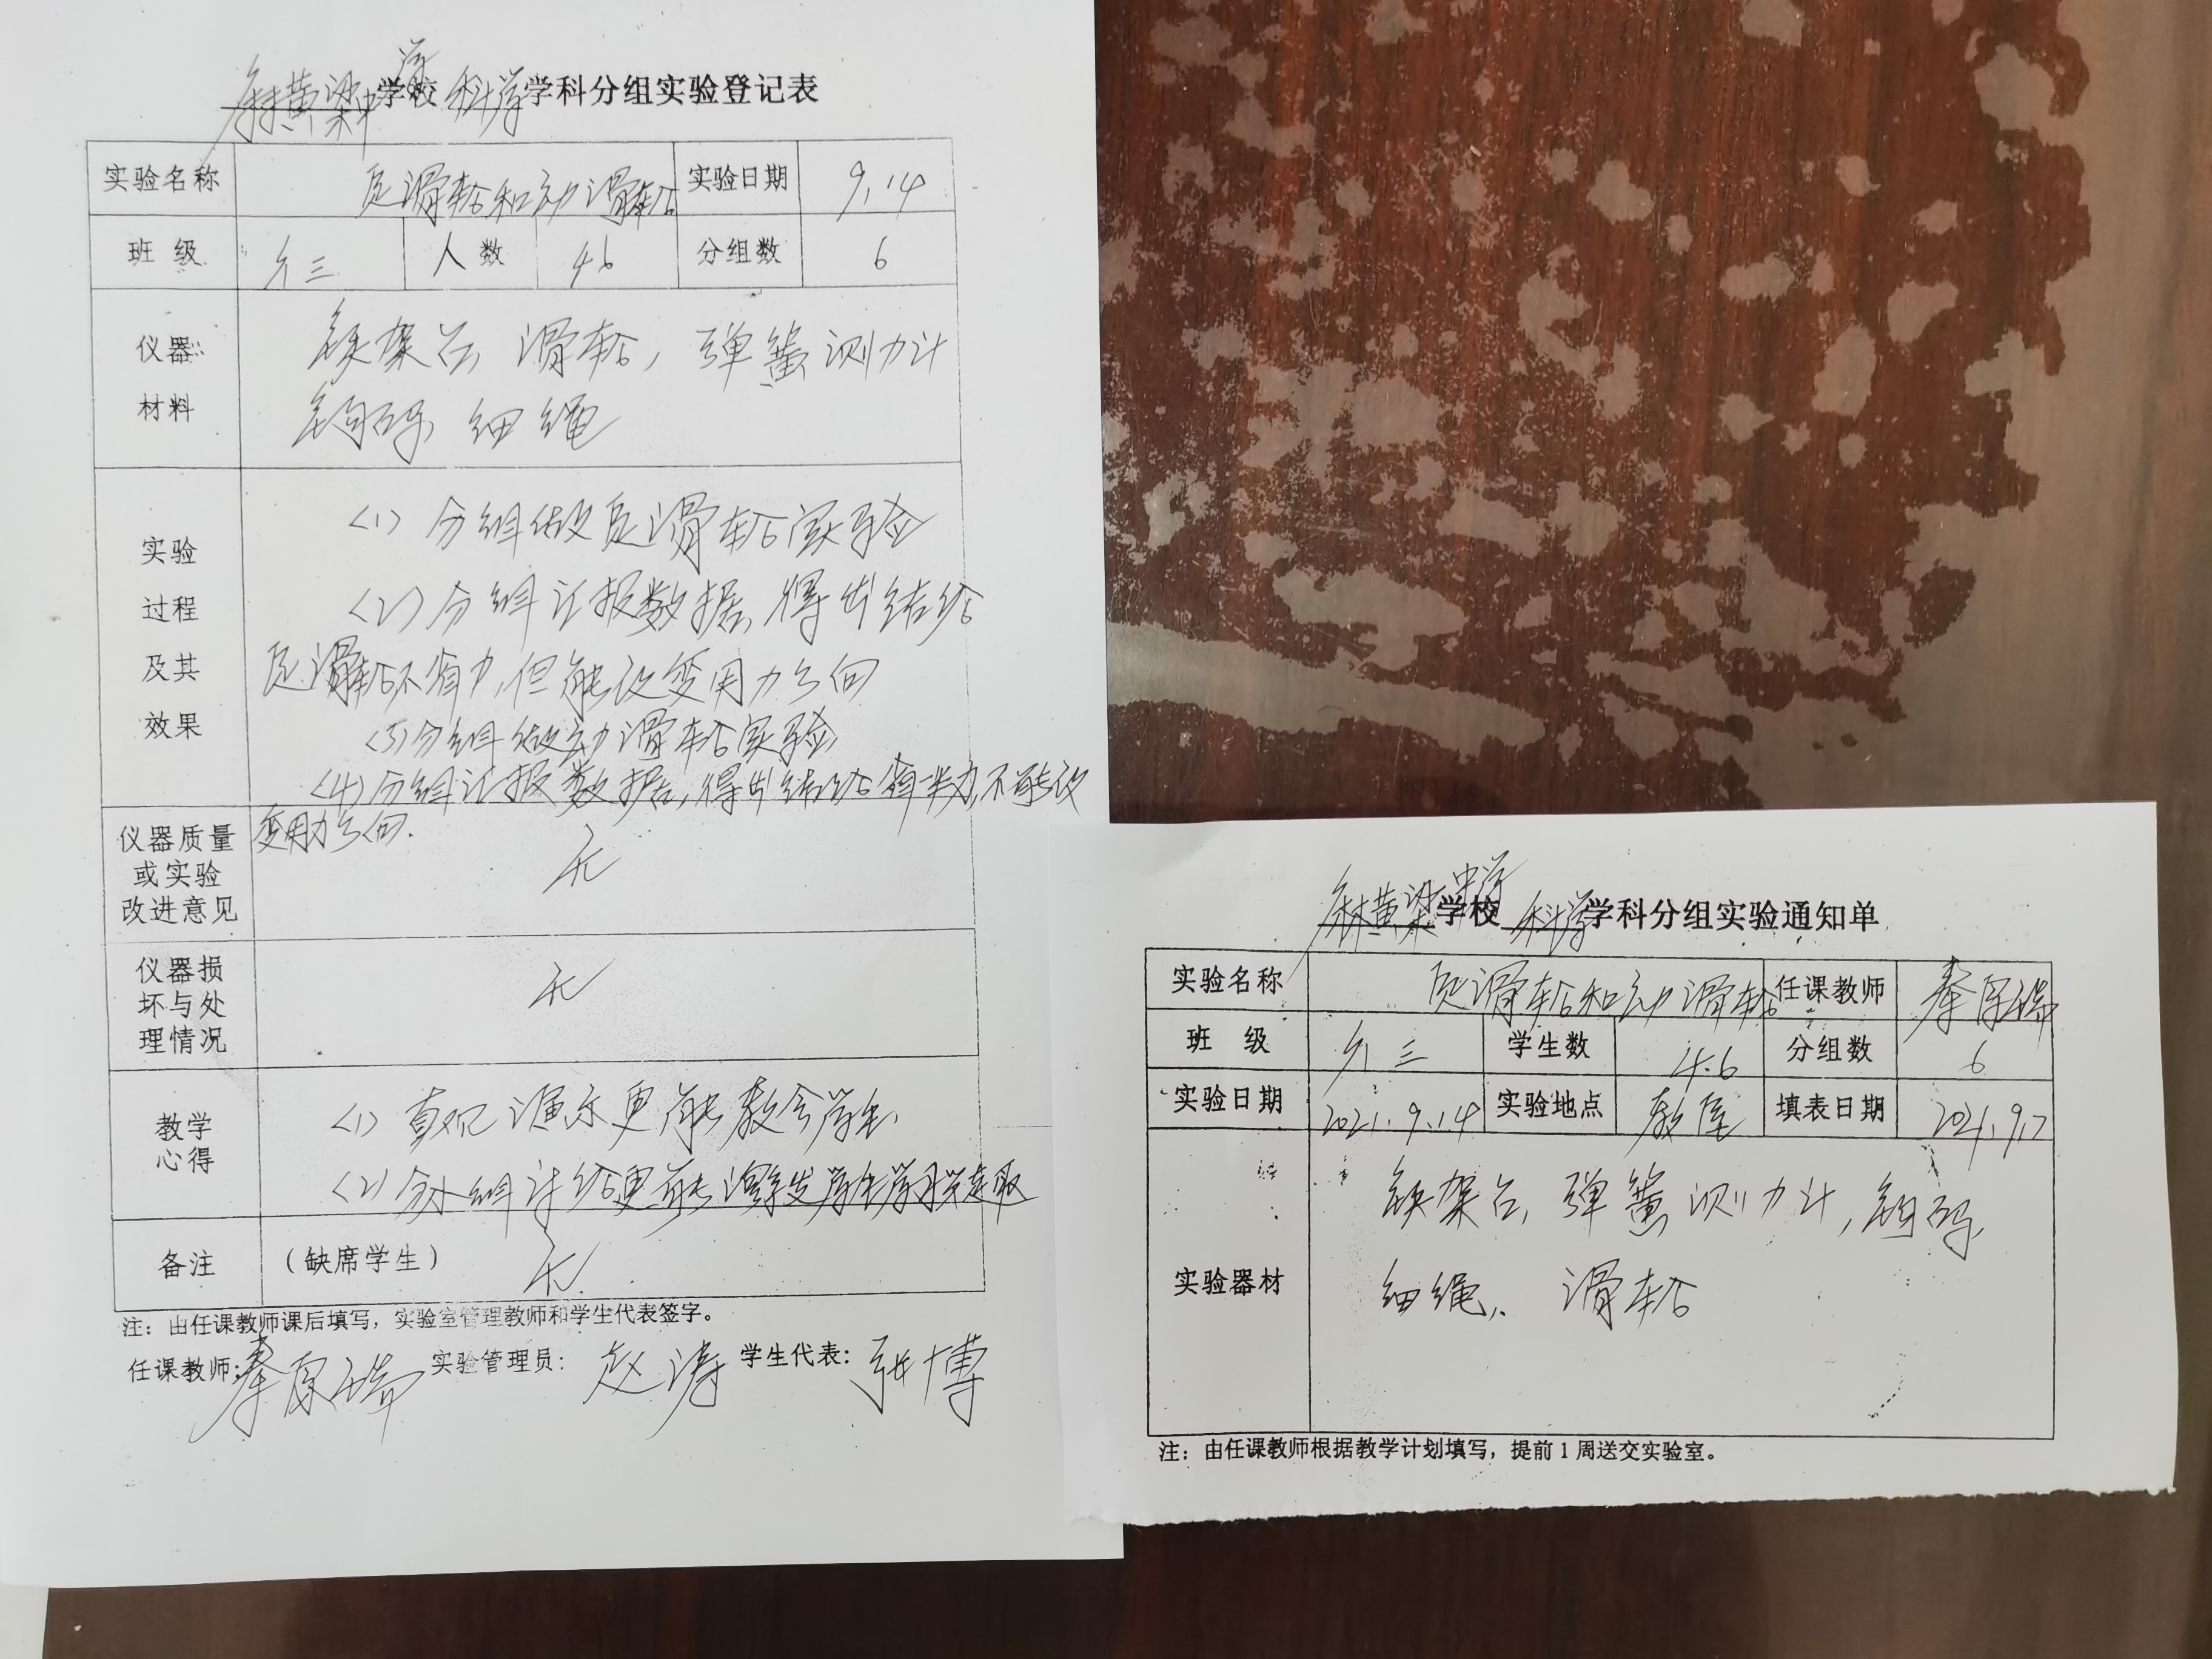 麻黄梁中学学校 科学学科分组实验登记表
实验名称 定滑轮和动滑轮 实验日期 9.14
班 级 六三 人 数 46 分组数 6
仪器 材料
铁架台、滑轮，弹簧测力计
钩码、细绳
实验 过程 及其 效果
<1> 分组做定滑轮实验
<2> 分组汇报数据，得出结论
定滑轮不省力，但能改变用力方向
<3> 分组做动滑轮实验
<4> 分组汇报数据，得出结论省一半力，不能改
变用力方向.
仪器质量 或实验 改进意见 无
仪器损 坏与处 理情况 无
教学 心得
<1> 直观演示更能教会学生
<2> 分小组讨论更能激发学生学习兴趣
备注 （缺席学生） 无
注：由任课教师课后填写，实验室管理教师和学生代表签字。
任课教师: 秦 实验管理员: 赵涛 学生代表: 张博
麻黄梁中学学校 科学学科分组实验通知单
实验名称 定滑轮和动滑轮 任课教师 秦
班 级 六三 学生数 46 分组数 6
实验日期 2021.9.14 实验地点 教室 填表日期 2021.9.7
实验器材
铁架台，弹簧测力计，钩码
细绳、滑轮
注：由任课教师根据教学计划填写，提前 1 周送交实验室。